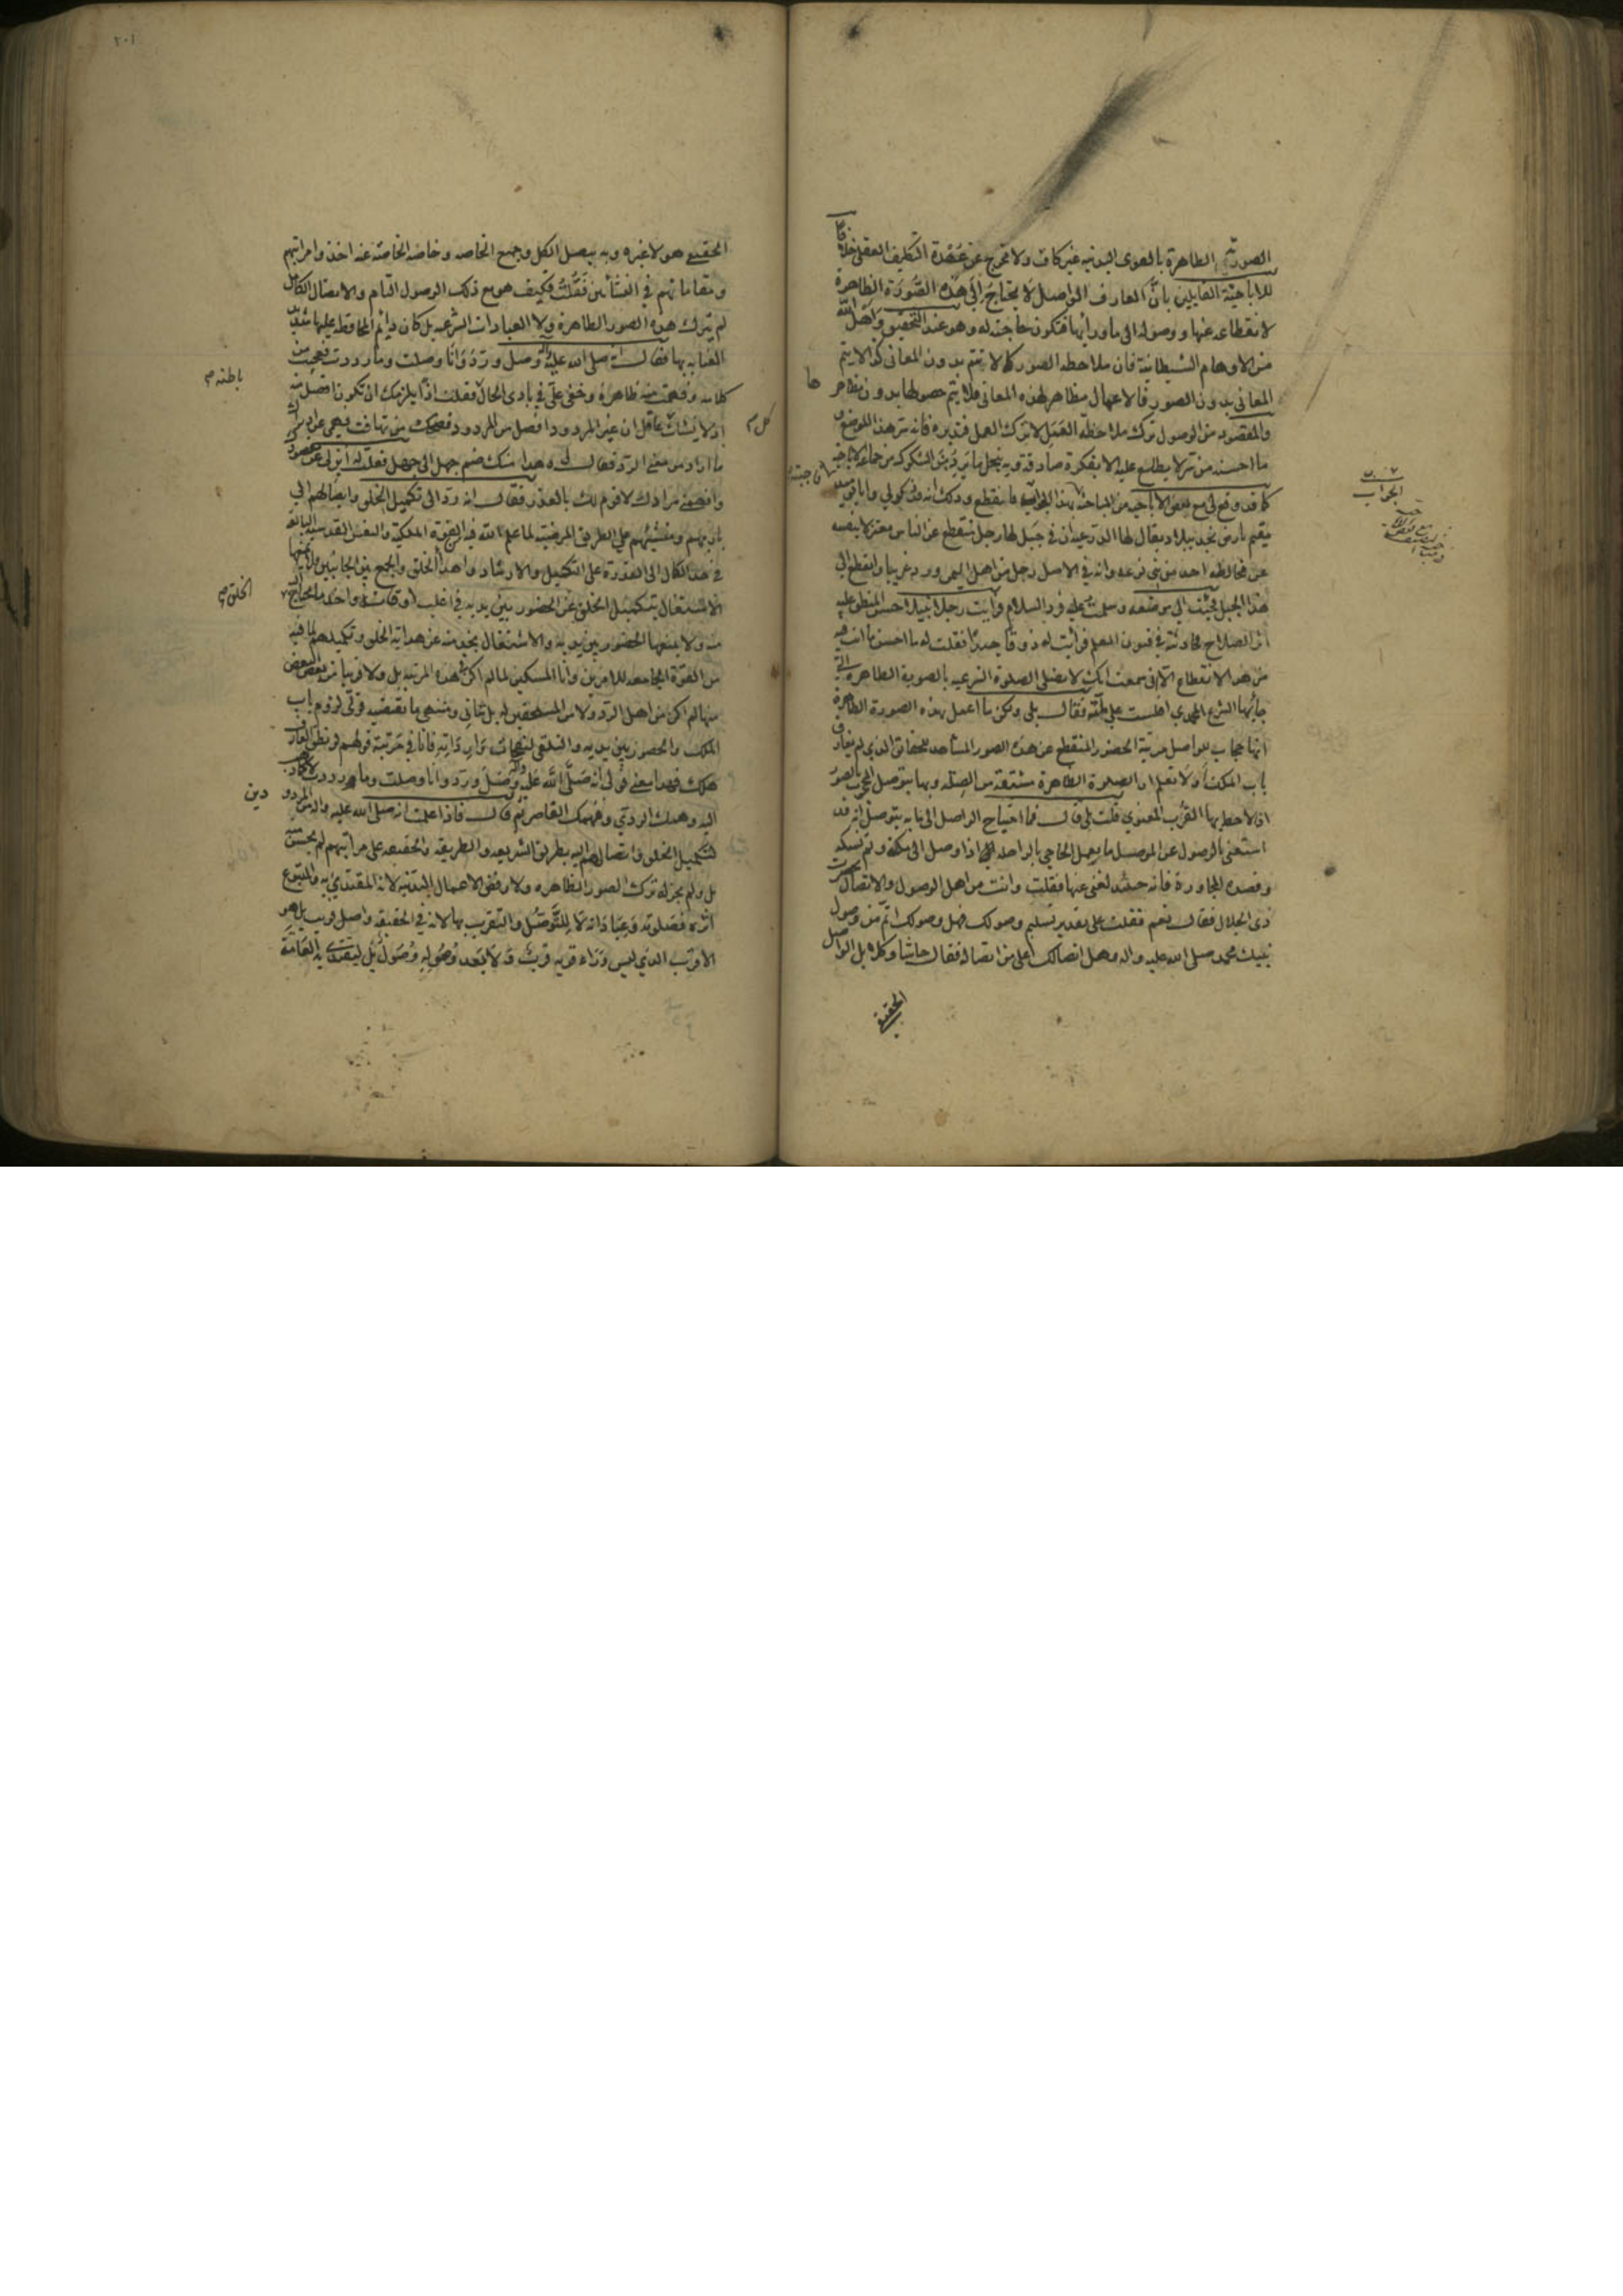 الصوريّة الظاهرة بالقوى البدنيه غير كاف ولا مخرج عن عهدة التكليف العقلى خلافا
للاباحيّة القايلين بانّ العارف الواصل لا يحتاج الى هذه الصّورة الظاهرة
لانقطاعه عنها ووصوله الى ماورائها فتكون حاجته له وهو عند التحقيق واهل الله
من الاوهام الشيطانية فان ملاحظه الصور كما لا تتم بدون المعانى كذا لا يتم
المعانى بدون الصور فالاعمال مظاهر لهذه المعانى فلا يتم حصولها بدون مظاهر
ها
والمقصود من الوصول ترك ملاحظة العمل لا ترك العمل فتدبره فانه سر هذا الموضع و
ما احسنه من سر لا يطلع عليه الا بفكرة صادقة وبه ينحل ما يرد من الشكوك من جماعة الاباحيه
كما قد وقع لى مع بعض الاباحيه من المباحثه بهذا الجواب فانقطع وذلك انه
الجواب
يقيم بارض نجد ببلاد يقال لها الدرعيه ان فى جبل لها رجل منقطع عن الناس معتزلا بنفسه
عن مخالطه احد من بنى نوعه وانه فى الاصل رجل من اهل اليمن ورد غريبا وانقطع الى
هذا الجبل فجئت الى موضعه وسلمت عليه فرد السلام فرايت رجلا نبيلا حسن المنطق عليه
اثر الصلاح فحادثته فى فنون العلم فرايت له ذوقا جيدا فقلت له ما احسن ما انت فيه
من هذا الانقطاع الا انى سمعت انك لا تصلى الصلوة الشرعيه بالصورة الظاهرة التى
جائها الشرع المحمدي افلست على ملّته فقال بلى ولكن ما اعمل بهذه الصورة الظاهرة
انها حجاب للواصل مرتبة الحضور المنقطع عن هذه الصور المشاهد للحقايق الذى لم يفارق
باب الملك او لا تعلم ان الصلوة الظاهرة مشتقة من الصله وبها يتوصل المحجوب بالصور
اذ لاحظ بها القرب المعنوي قلت بلى قال فما احتياج الواصل الى ما به يتوصل اذ قد
استغنى بالوصول عن الموصل ما يعمل الحاجى بالراحله اذا وصل الى مكة وتم نسكه
وقصده المجاورة فانه حينئذ لغنى عنها فقلت وانت من اهل الوصول والاتصال بحضرت
ذى الجلال فقال نعم فقلت على تقدير تسليم وصولك فهل وصولك اتم من وصول
نبيك محمد صلى الله عليه واله وهل اتصالك اعلى من اتصاله فقال حاشا وكلا بل الواصل
الحقيقى
٢٠١
الحقيقى هو لا غيره وبه يتصل الكل وجميع الخاصه وخاصه الخاصّه عنه اخذوا مراتبهم
ومقاماتهم فى النشأتين فقلت فكيف هو مع ذلك الوصول التام والاتصال الكامل
لم يترك هذه الصور الظاهرة ولا العبادات الشرعيه بل كان دايم المحافظه عليها شديد
العنايه بها فقال انه صلى الله عليه واله وصل وردّ وانا وصلت وما رددت فعجبت من
كلامه وفهمت منه ظاهرة وخفى علىّ فى بادى الحال فقلت اذا يلزمك ان تكون افضل منه
باطنه م
اذ لا يشك عاقل ان غير المردود افضل من المردود فضحك من تهافت فهمى عن ادراك
كل م
ما اراد من معنى الردّ فقال لى هذا منك ضم جهل الى جهل فقلت له ابن لى عن مقصودك
وافصح عن مرادك لاقوم لك بالعذر فقال انه ردّ الى تكميل الخلق وايصالهم الى
باريهم وتمشيتهم على الطريق المرضيّة لما علم الله فيه القوة الملكية والنفس القدسيه البالغة
فى حد الكمال الى القدرة على التكميل والارشاد واهداء الخلق والجمع بين الجانبين ولا يمنعها
الاشتغال بتكميل الخلق عن الحضور بين يديه فى اغلب اوقاته واخذ ما يحتاج اليه
الخلق م
منه ولا يمنعها الحضور بين يديه والاشتغال بخدمته عن هداية الخلق وتكميلهم لما فيه
من القوّة الجامعه للامرين وانا المسكين لما لم اكن فى هذه المرتبه بل ولا قريبا من بعض البعض
منها لم اكن من اهل الردّ ولا من المستحقين له بل شانى ومنتهى ما تقتضيه قوتى لزوم باب
الملك والحضور بين يديه والتلقى لنفحات بوارداته فانا فى مرتبة قولهم لو نطق العارف
هلك فهذا معنى قولى انه صلّى الله عليه واله وصل وردّ وانا وصلت وما رددت
اليه وهمك الردي وفهمك القاصر ثم قال فاذا علمت انه صلى الله عليه واله من المردو
دين
لتكميل الخلق وايصالهم اليه بطريق الشريعه والطريقه والحقيقه على مراتبهم لم يحسن منه
بل ولم يجز له ترك الصور الظاهره ولا رفض الاعمال البدنيه لانه المقتدى به والمتبوع
اثره فصلوته وعباداته لا للتوصّل والتقرب بها لانه فى الحقيقه واصل قريب بل هو
الاقرب الذي ليس وراء قربه قرب ولا بعد وصوله وصول بل ليقتدى به العامّة